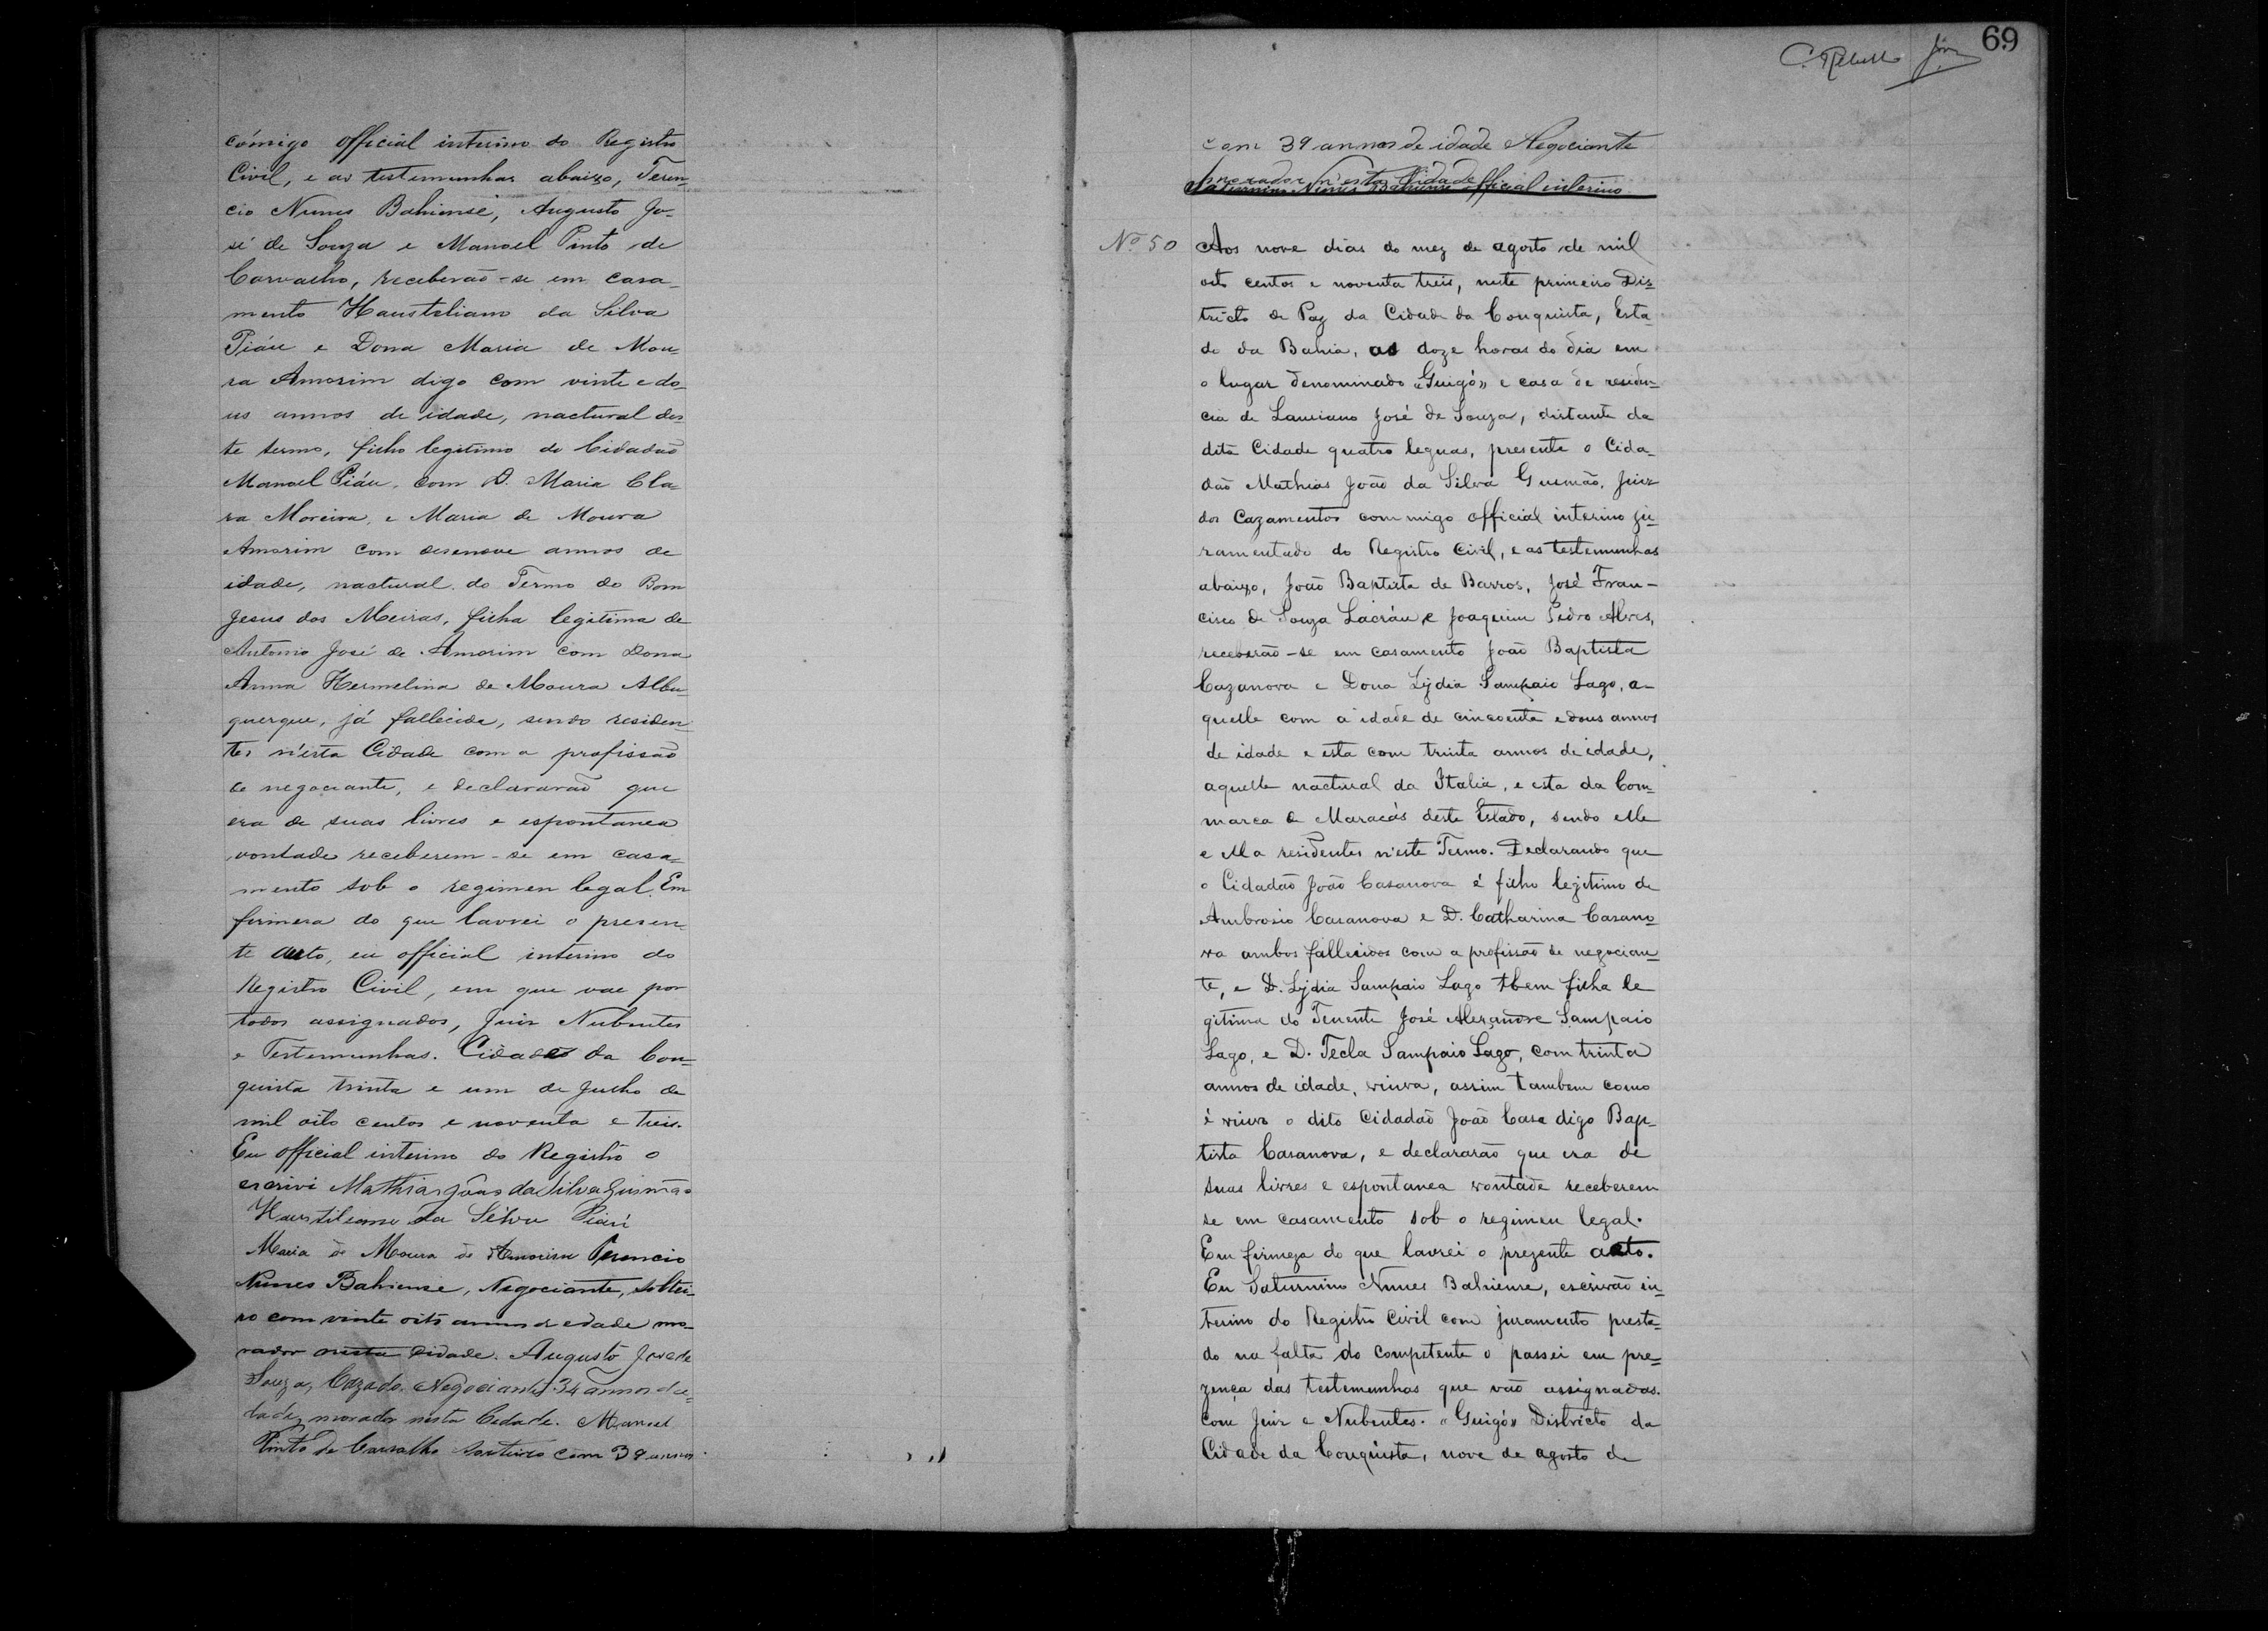 cómigo official interino do Registro
Civil, e as testemunhas abaixo, Teren-
cio Nunes Bahiense, Augusto Jo-
sé de Souza e Manoel Pinto de
Carvalho, receberão-se em casa-
mento Haustiliano da Silva
Piáu e Dona Maria de Mou-
ra Amorim digo com vinte e do-
us annos de idade, nactural des-
te termo, filho legitimo do Cidadão
Manoel Piáu, com D. Maria Cla-
ra Moreira, e Maria de Moura
Amorim com desenove annos de
idade, nactural do Termo do Bom
Jesus dos Meiras, filha legitima de
Antonio José de Amorim com Dona
Anna Hermelina de Moura Albu-
querque, já fallecida, sendo residen-
tes n'esta Cidade com a profissão
de negociante, e declararão que
era de suas livres e espontanea
vontade receberem-se em casa-
mento sob o regimen legal. Em
firmesa do que lavrei o presen-
te auto, eu official interino do
Registro Civil, em que vae por
todos assignados, Juiz Nubentes
e Testemunhas. Cidade da Con-
quista trinta e um de Julho de
mil oito centos e noventa e treis.
Eu official interino do Registro o
escrivi Mathias João da Silva Gusmão
Haustiliano da Silva Piáu
Maria de Moura de Amorim Terencio
Nunes Bahiense, Negociante, soltei-
ro com vinte oito annos de edade mo-
rador nesta Cidade. Augusto José de
Souza, Cazado Negociante 34 annos de i-
dade, morador nesta Cidade. Manoel
Pinto de Carvalho com 39 annos
C. Rebello
69
com 39 annos de idade Negociante
morador n'esta Cidade
Saturnino Nunes Bahiense official interino
Nº 50
Aos nove dias do mez de agosto de mil
oito centos e noventa treis, neste primeiro Dis-
tricto de Paz da Cidade da Conquista, Esta-
do da Bahia, as doze horas do dia em
o lugar denominado "Guigó" e casa de residen-
cia de Lauriano José de Souza, distante da
dita Cidade quatro leguas, presente o Cida-
dão Mathias João da Silva Gusmão, Juiz
dos Cazamentos commigo official interino ju-
ramentado do Registro Civil, e as testemunhas
abaixo, João Baptista de Barros, José Fran-
cisco de Souza Lacráu, e Joaquim Pedro Alves,
receberão-se em casamento João Baptista
Cazanova e Dona Lydia Sampaio Lago, a-
quelle com a idade de cincoenta e dous annos
de idade e esta com trinta annos de idade,
aquelle nactural da Italia, e esta da Com-
marca de Maracás deste Estado, sendo elle
e ella residentes n'este Termo. Declarando que
o Cidadão João Casanova é filho legitimo de
Ambrosio Casanova e D. Catharina Casano-
va ambos fallecidos com a profissão de negocian-
te, e D. Lydia Sampaio Lago tbem filha le
gitima do Tenente José Alexandre Sampaio
Lago, e D. Tecla Sampaio Lago, com trinta
annos de idade, viuva, assim tambem como
é viuvo o dito Cidadão João Casa digo Bap-
tista Casanova, e declararão que era de
suas livres e espontanea vontade receberem
se em casamento sob o regimen legal.
Em firmeza do que lavrei o prezente auto.
Eu Saturnino Nunes Bahiense, escrivão in-
terino do Registro Civil com juramento presta-
do na falta do competente o passei em pre-
zença das testemunhas que vão assignadas.
Com Juiz e Nubentes. "Guigó" Districto da
Cidade da Conquista, nove de agosto de